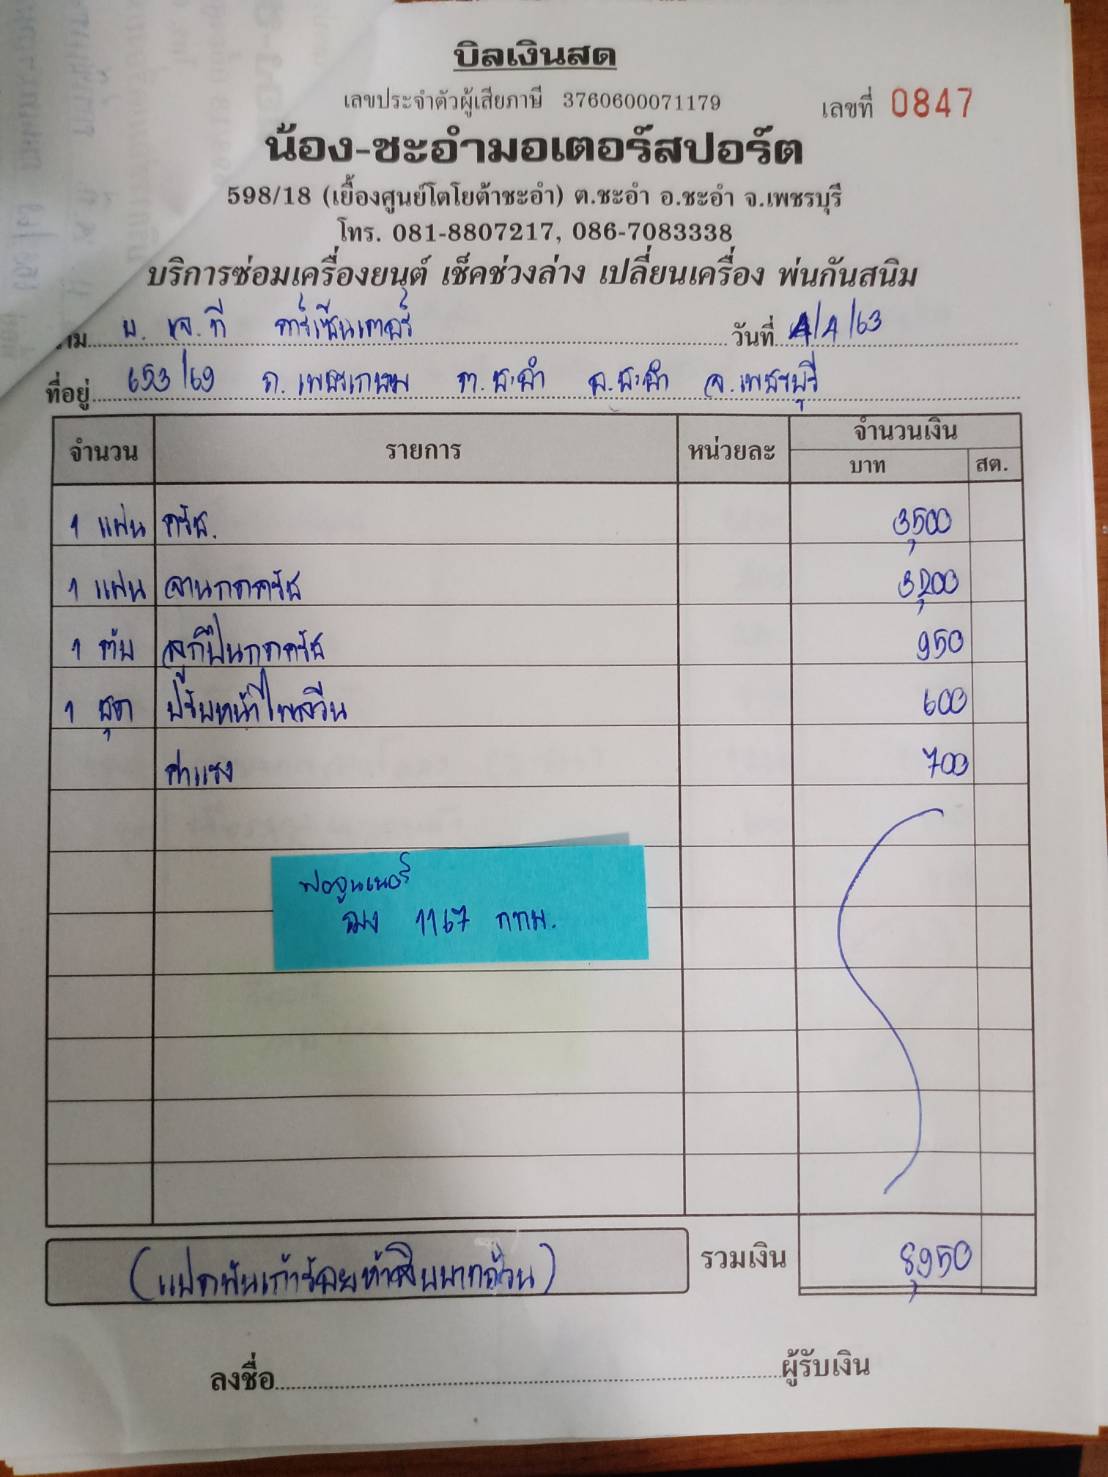 บิลเงินสด
เลขประจำตัวผู้เสียภาษี 3760600071179
เลขที่ 0847
น้อง-ชะอำมอเตอร์สปอร์ต
598/18 (เยื้องศูนย์โตโยต้าชะอำ) ต.ชะอำ อ.ชะอำ จ.เพชรบุรี
โทร. 081-8807217, 086-7083338
บริการซ่อมเครื่องยนต์ เช็คช่วงล่าง เปลี่ยนเครื่อง พ่นกันสนิม
บ. เจ.ที คาร์เซ็นเตอร์ วันที่ 4/4/63
ที่อยู่ 653/69 ถ. เพชรเกษม ต. ชะอำ อ. ชะอำ จ. เพชรบุรี
จำนวน รายการ หน่วยละ จำนวนเงิน
บาท สต.
1 แผ่น ครัช. 3,500
1 แผ่น จานกดครัช 3,200
1 ตับ ลูกปืนกดครัช 950
1 ชุด ปรับหน้าไพลวีน 600
ค่าแรง 700
ฟอจูนเนอร์
ฌง 1167 กทม.
(แปดพันเก้าร้อยห้าสิบบาทถ้วน) รวมเงิน 8,950
ลงชื่อ ผู้รับเงิน